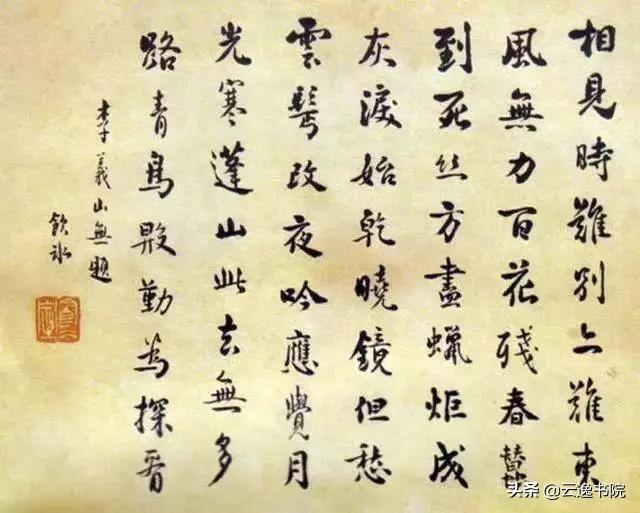 相見時難別亦難東
風無力百花殘春蠶
到死丝方盡蠟炬成
灰淚始乾曉鏡但愁
雲鬢改夜吟應覺月
光寒蓬山此去無多
路青鳥殷勤為探看
李義山無題
飲冰
头条 @云逸书院